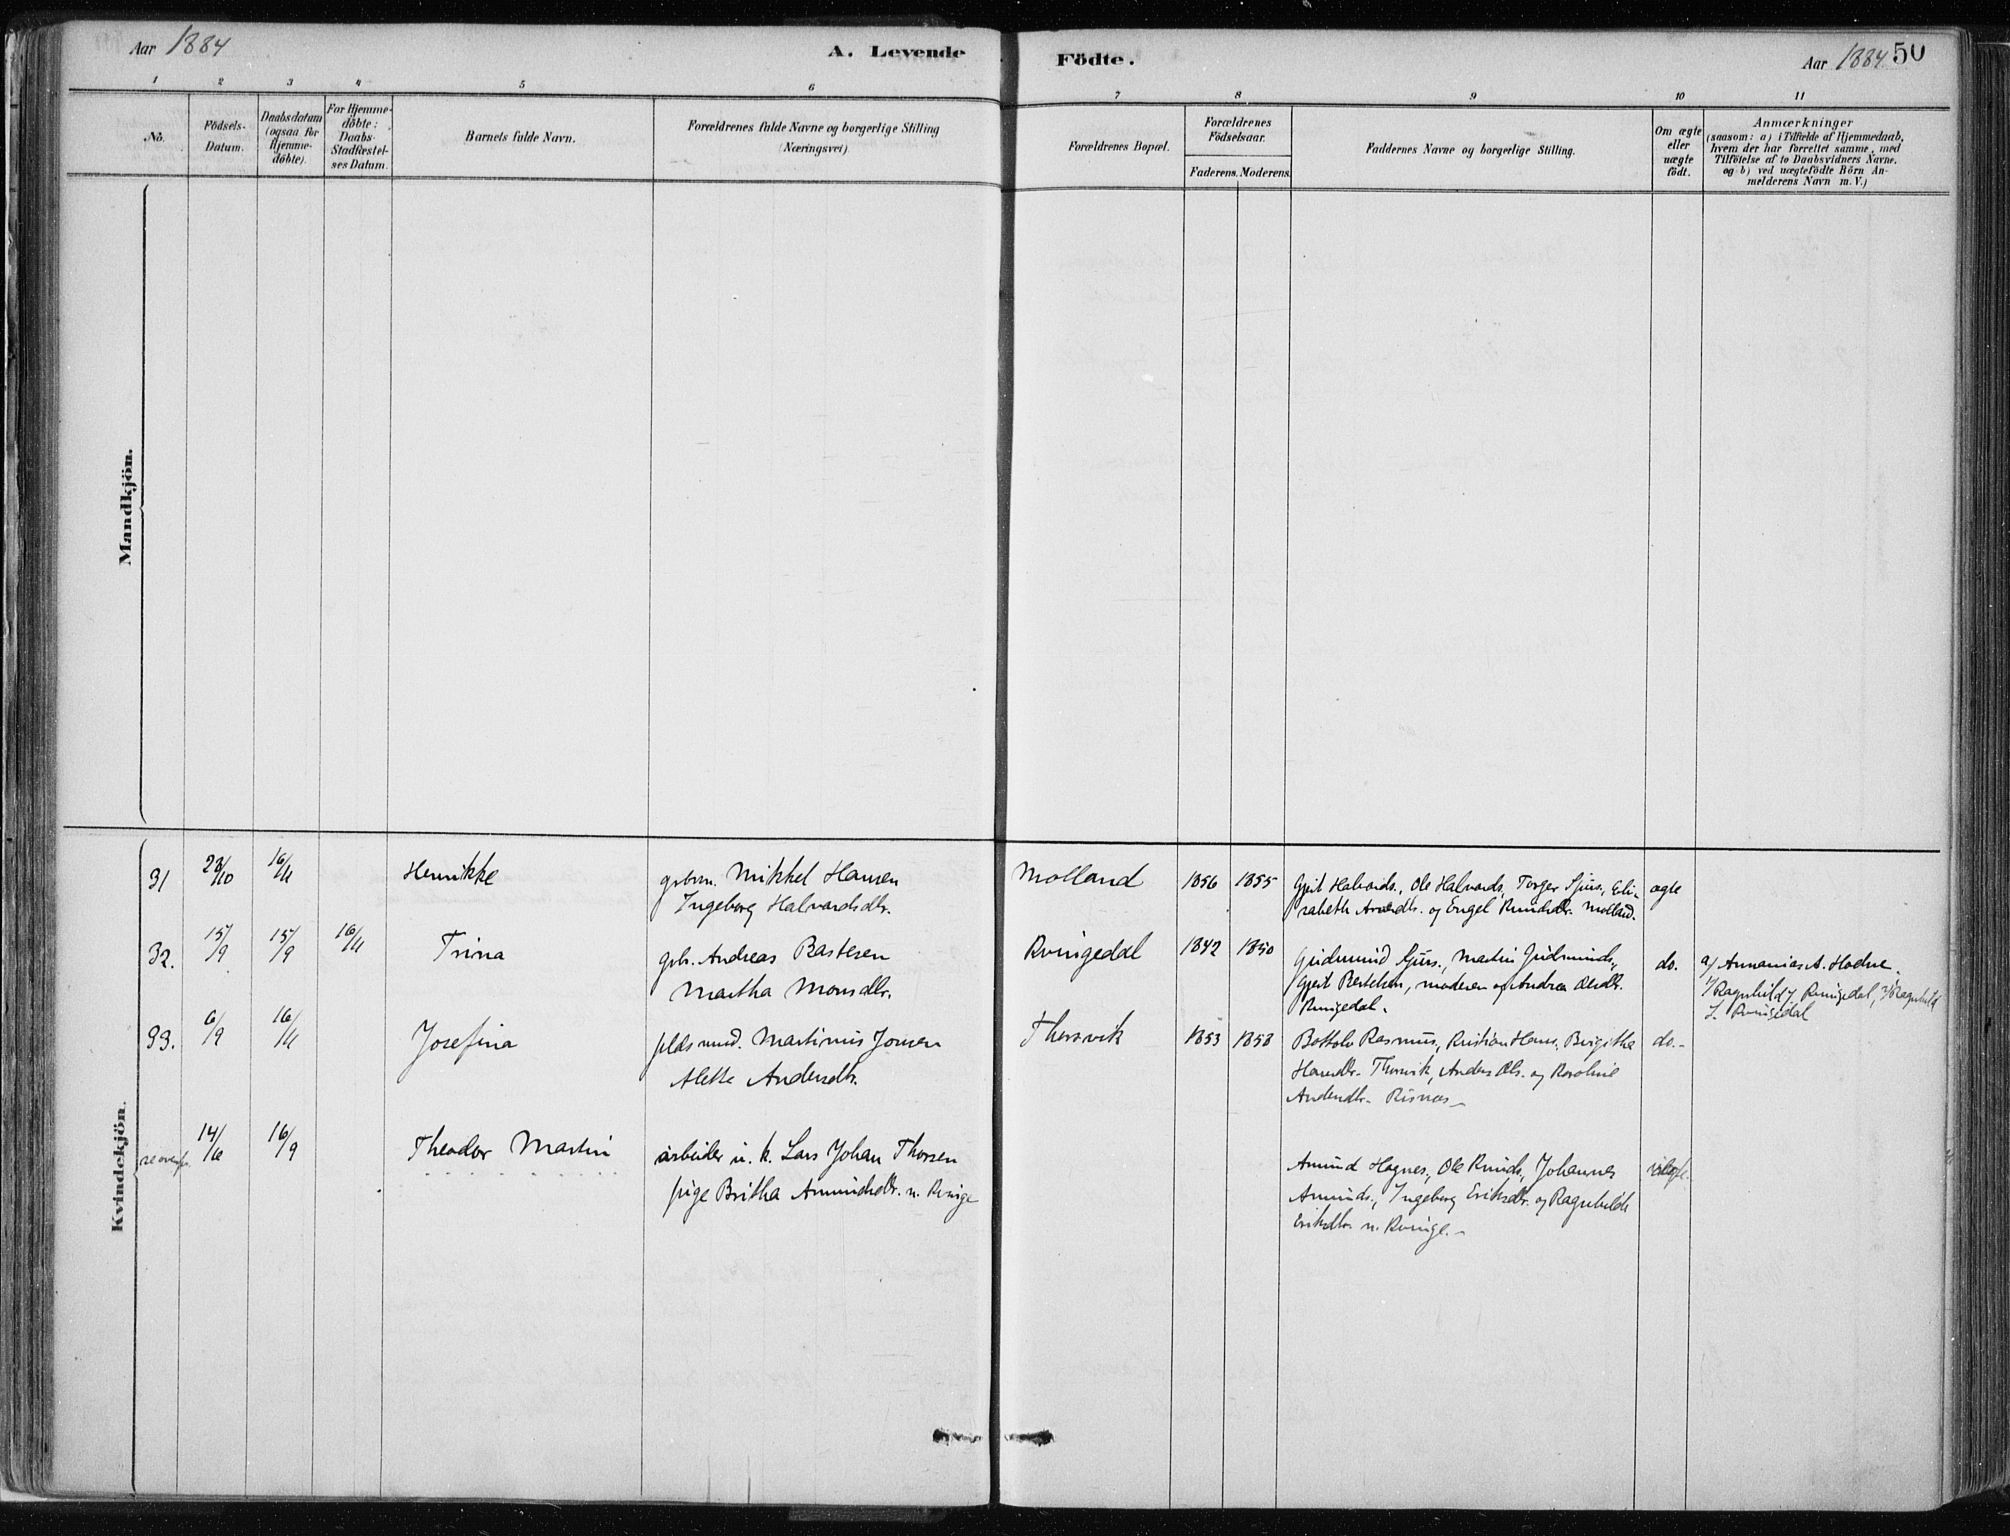 Aar 1884
A. Levende
Födte.
Aar 1884
50
1 2 3 4 5 6 7 8 9 10 11
No.
Födsels-
Datum.
Daabsdatum
(ogsaa for
Hjemme-
döbte).
For Hjemme-
döbte:
Daabs-
Stadfæstel-
ses Datum.
Barnets fulde Navn.
Forældrenes fulde Navne og borgerlige Stilling
(Næringsvei).
Forældrenes Bopæl.
Forældrenes
Födselsaar.
Faderens. Moderens.
Faddernes Navne og borgerlige Stilling.
Om ægte
eller
uægte
födt.
Anmærkninger
(saasom: a) i Tilfælde af Hjemmedaab,
hvem der har forrettet samme, med
Tilföielse af to Daabsvidners Navne.
og b) ved uægtefödte Börn An-
melderens Navn m. V.)
Mandkjön.
Kvindekjön.
31
23/10
16/11
Henrikke
gbrm. Mikkel Hansen
Ingeborg Halvardsdtr.
Molland
1856
1855
Gjert Halvards., Ole Halvards., Torger Sjurs., Eli-
sabeth og Engel Knudsdtr. Molland.
ægte
32.
15/9
15/9
16/11
Trina
gbr. Andreas Bastesen
Martha Monsdtr.
Kvingedal
1842
1850
Gudmund Sjurs., Martin Gudmunds.,
Gjert Bertelsen, moderen og Andrea Olsdtr.
Kvingedal.
do.
a/ Annanias A. Hodne.
1/ Ragnhild J. Kvingedal, 2/ Ragnhild
L. Kvingedal
33.
6/9
16/11
Josefina
plds mnd. Martinus Jonsen
Alette Andersdtr.
Thorsvik
1853
1858
Bottolv Rasmus., Kristian Hans., Brigitha
Hansdtr. Thorsvik, Anders Ols. og Karoline
Andersdtr. Risnæs
do.
14/6
16/9
Theodor Martin
arbeider u. k. Lars Johan Thorsen
pige Britha Amundsdtr. n. Kvinge
Amund Hagnes., Ole Knuds., Johannes
Amunds., Ingeborg Eriksdtr. og Ragnhilde
Eriksdtr. n. Kvinge.